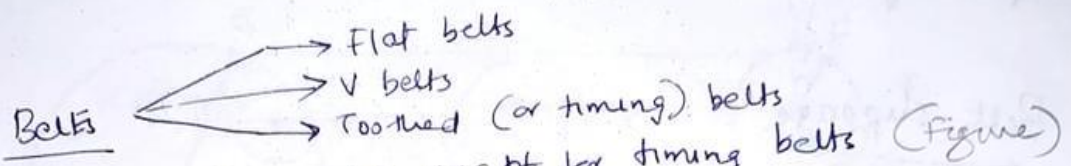 Flat belts
V belts
Belts
Toothed (or timing) belts
for timing belts (Figure)